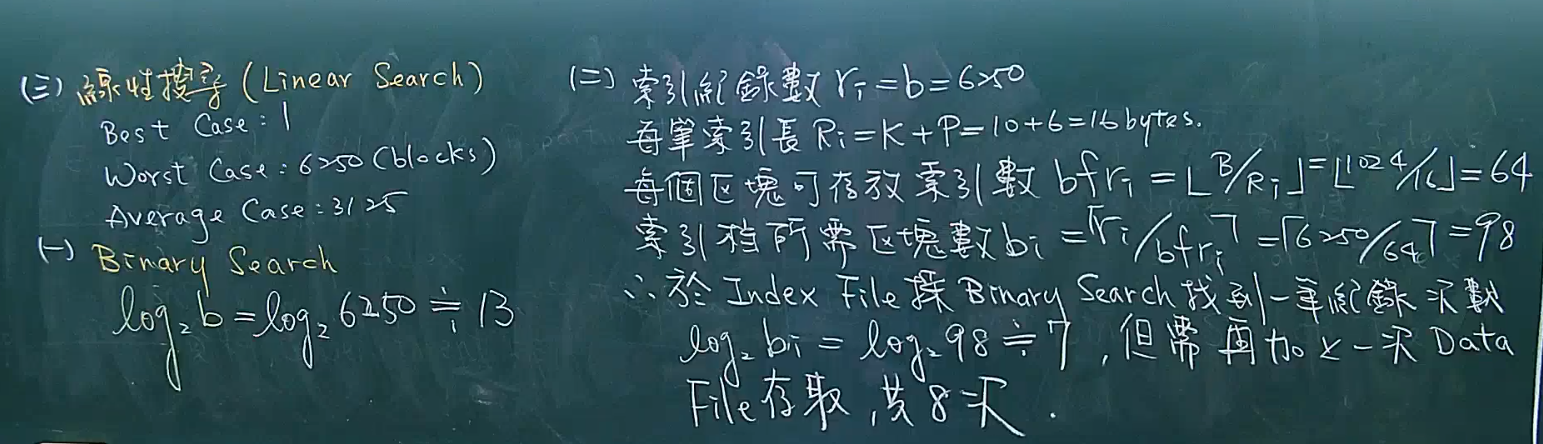 (三) 線性搜尋 (Linear Search)
Best Case : 1
Worst Case : 6250 (blocks)
Average Case : 3125
(一) Binary Search
log₂b = log₂6250 ≒ 13
(二) 索引紀錄數 ri = b = 6250
每筆索引長 Ri = K + P = 10 + 6 = 16 bytes.
每個区塊可存放索引數 bfri = ⌊B/Ri⌋ = ⌊1024/16⌋ = 64
索引檔所需区塊數 bi = ⌈ri/bfri⌉ = ⌈6250/64⌉ = 98
∴於 Index File 採 Binary Search 找到一筆紀錄次數
log₂bi = log₂98 ≒ 7 , 但需再加上一次 Data
File 存取 , 共 8 次 .